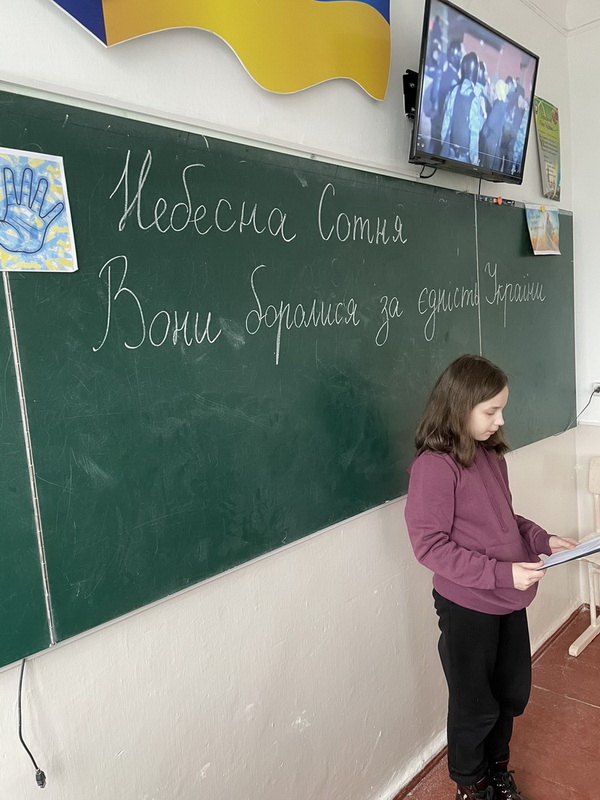 Небесна Сотня
Вони боролися за єдність України